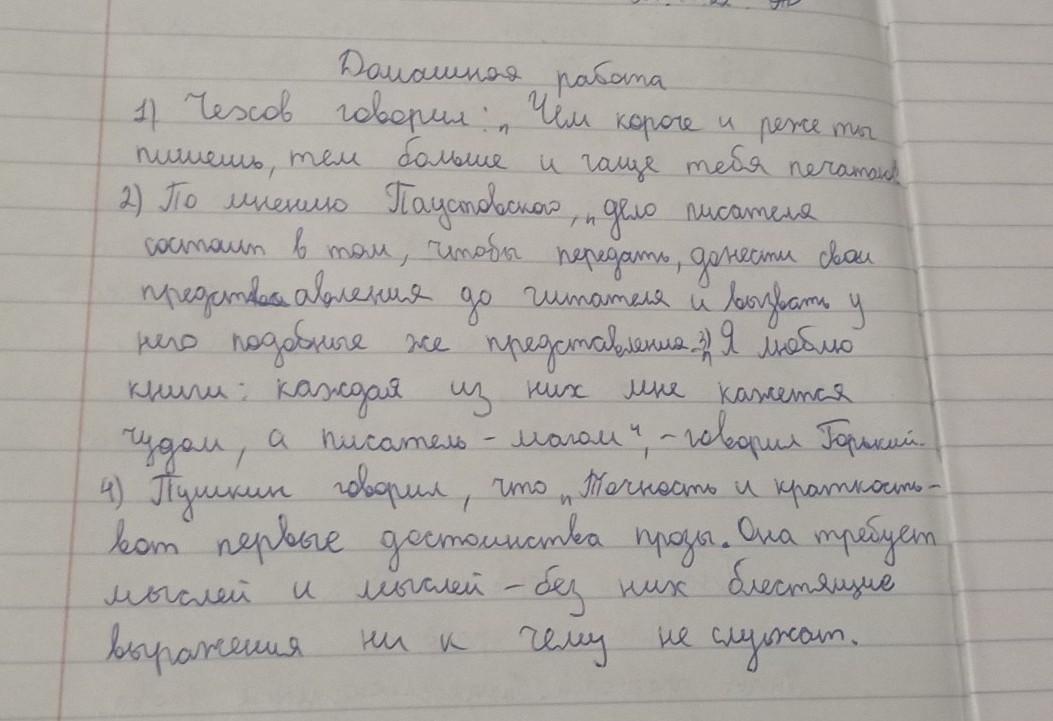 Домашная работа
1) Чехов говорил: „Чем короче и реже ты
пишешь, тем больше и чаще тебя печатают
2) По мнению Паустовского, „дело писателя
состоит в том, чтобы передать, донести свои
представления до читателя и вызвать у
него подобные же представления. 3) „Я люблю
книги: каждая из них мне кажется
чудом, а писатель – магом“, – говорил Горький.
4) Пушкин говорил, что „Точность и краткость –
вот первые достоинства прозы. Она требует
мыслей и мыслей – без них блестящие
выражения ни к чему не служат.